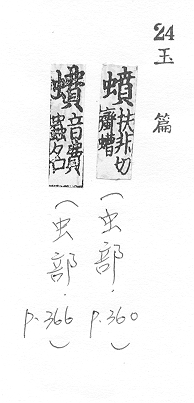 24
玉篇
蟦 扶非切
螬
(虫部. p.360)
音費
蟲名
(虫部. p.366)